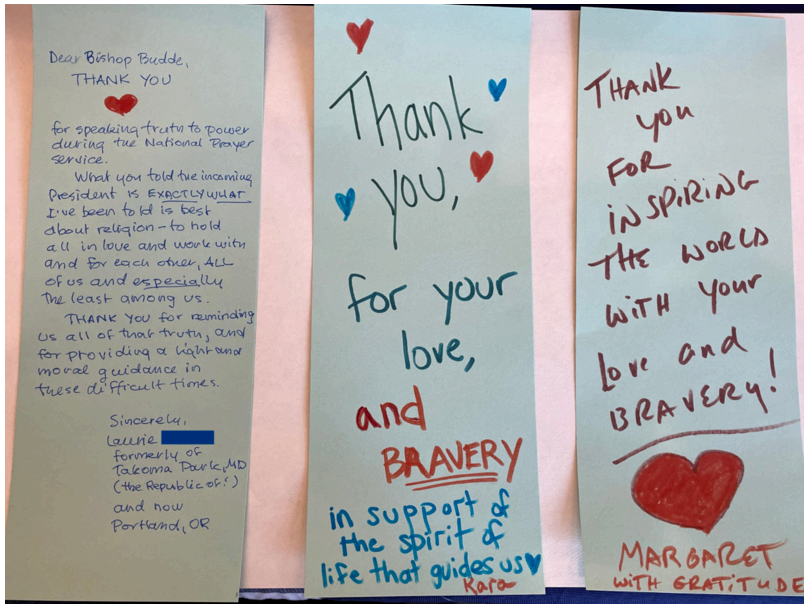 Dear Bishop Budde,
THANK YOU
for speaking truth to power
during the National Prayer
Service.
What you told the incoming
President is EXACTLY WHAT
I've been told is best
about religion - to hold
all in love and work with
and for each other, ALL
of us and especially
the least among us.
THANK YOU for reminding
us all of that truth, and
for providing a light and
moral guidance in
these difficult times.
Sincerely,
Laurie
formerly of
Takoma Park, MD
(the Republic of!)
and now
Portland, OR
Thank
you,
for your
love,
and
BRAVERY
in support of
the spirit of
life that guides us
Kara
THANK
you
FOR
iNSPiRiNG
THE WORLD
WiTH your
Love and
BRAVERY!
MARGARET
WITH GRATITUDE